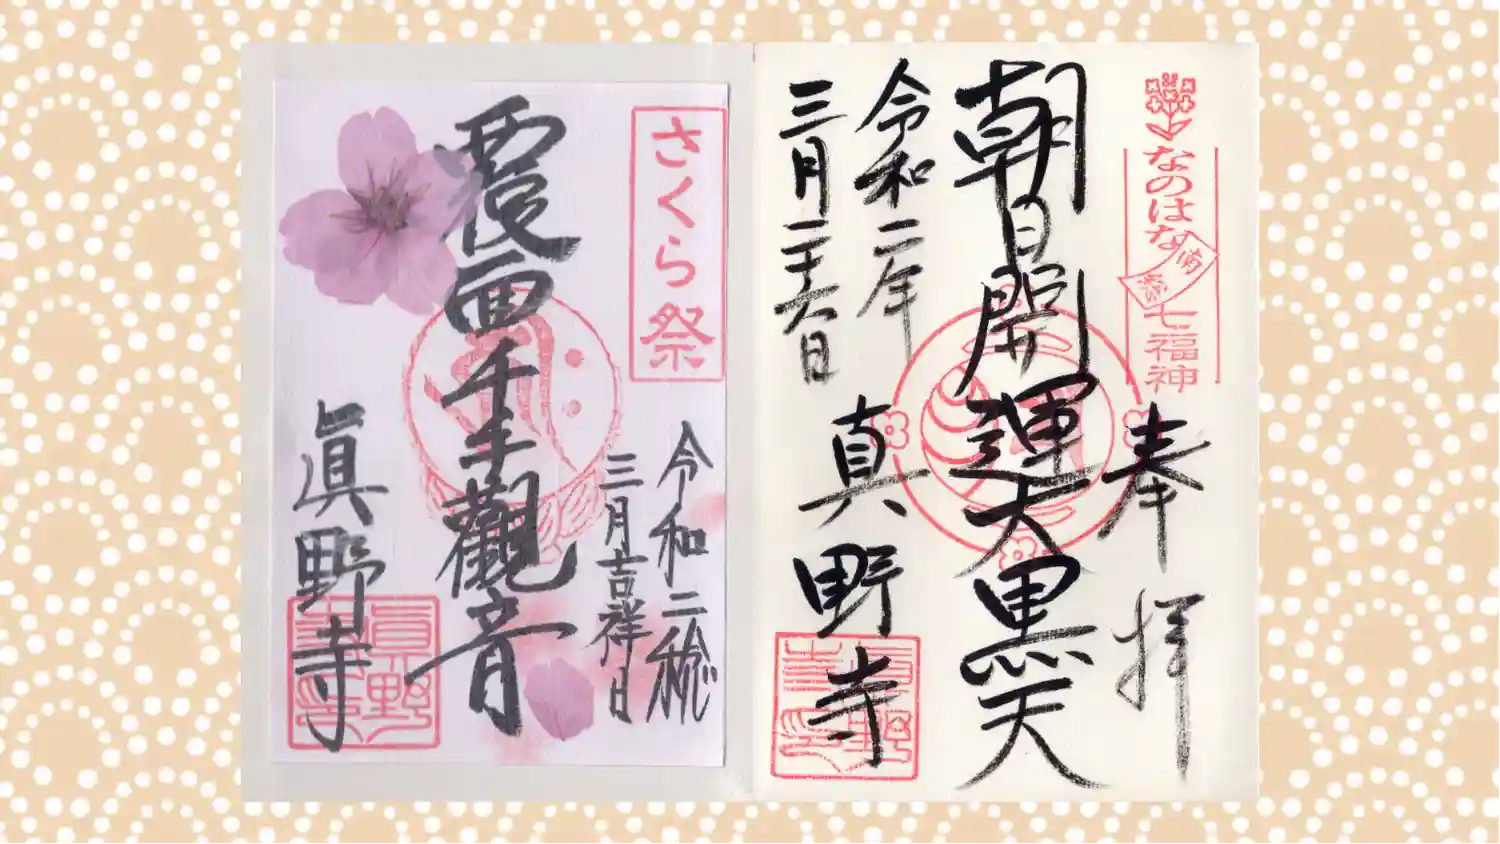 なのはな
南
総
七福神
奉拝
朝日開運大黒天
令和二年
三月二十六日
真野寺
さくら祭
令和二稔
三月吉祥日
覆面千手觀音
眞野寺
眞野
寺印